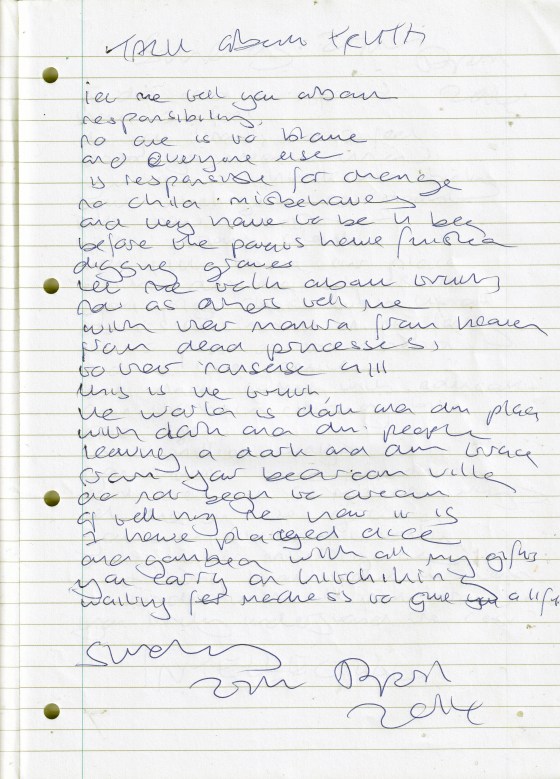 TALK about TRUTH
let me tell you about
responsibility,
no one is to blame
and everyone else
is responsible for change
no child misbehaves
and they have to be in bed
before the parents have finished
digging graves
let me talk about truth
not as others tell me
with their manna from heaven
from dead princesses,
to their nonsense
this is the truth,
the world is dark and dim place
with dark and dim people
leaving a dark and dim trace
from your villa
do not begin to dream
of telling me how it is
I have played dice
and gambled with all my gifts
you carry on hitchhiking
waiting for madness to give a lift